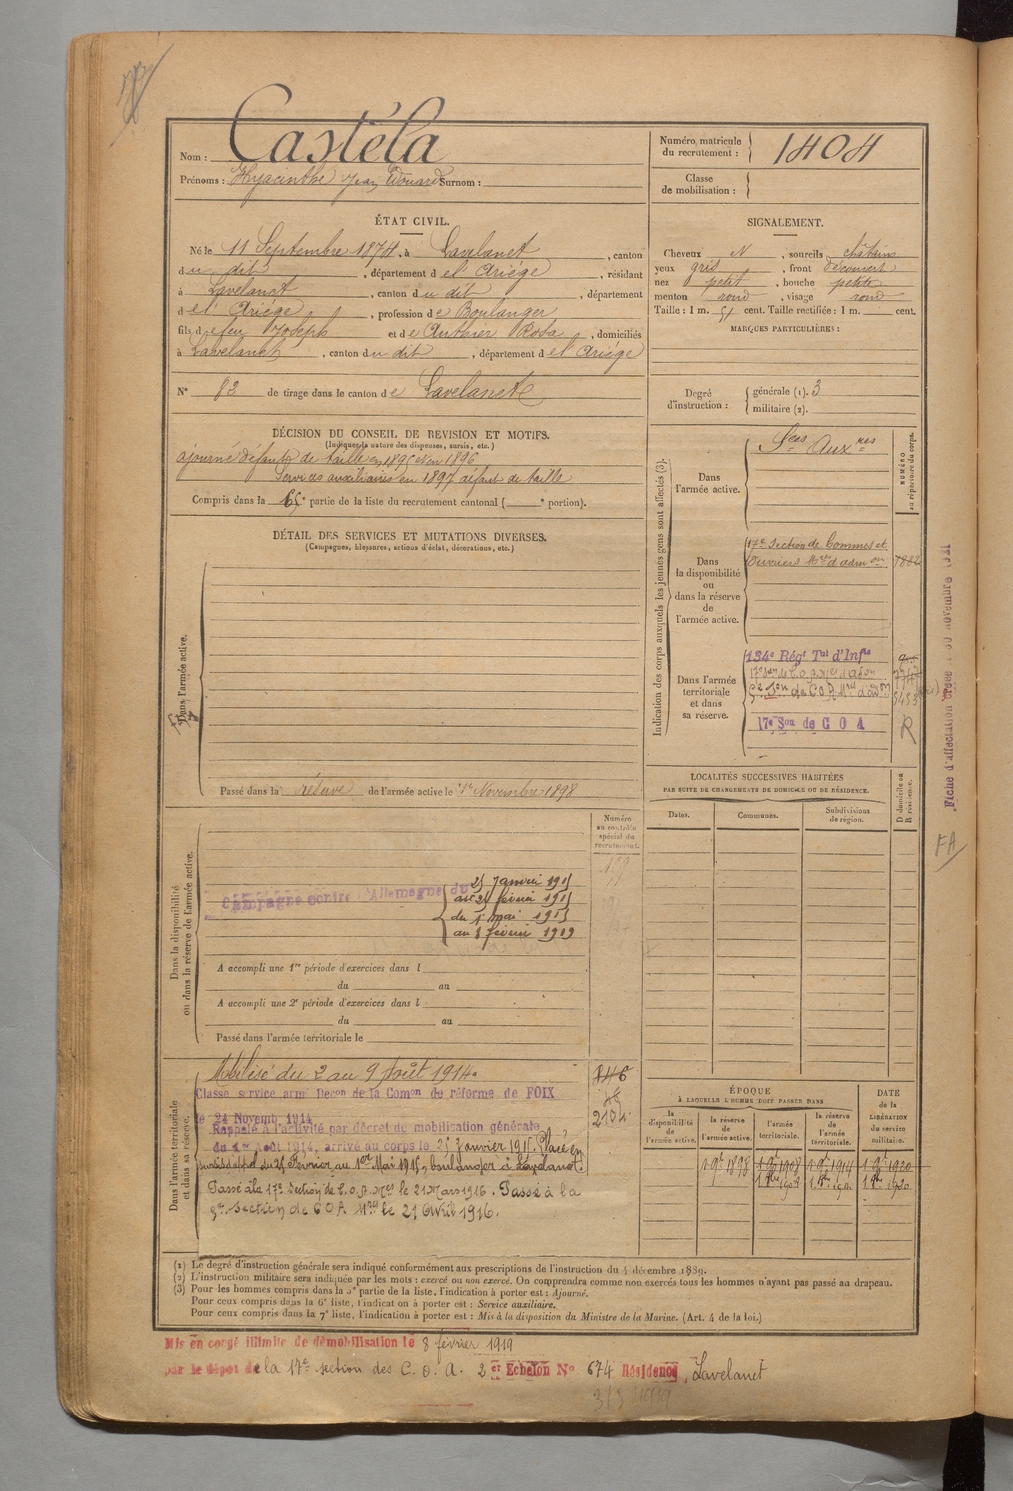 Nom : Castéla
Prénoms : Hyacinthe Jean Edouard Surnom :
Numéro matricule du recrutement : 1404
Classe de mobilisation :
ÉTAT CIVIL.
Né le 11 Septembre 1874, à Lavelanet, canton
du dit, département de l'Ariége, résidant
à Lavelanet, canton du dit, département
de l'Ariége, profession de Boulanger
fils de feu Joseph et de Authier Rosa, domiciliés
à Lavelanet, canton du dit, département de l'Ariége
N° 82 de tirage dans le canton de Lavelanet
SIGNALEMENT.
Cheveux N, sourcils châtains
yeux gris, front découvert
nez petit, bouche petite
menton rond, visage rond
Taille : 1 m. 51 cent. Taille rectifiée : 1 m. cent.
MARQUES PARTICULIÈRES :
Degré d'instruction : générale (1). 3
militaire (2).
DÉCISION DU CONSEIL DE REVISION ET MOTIFS.
(Indiquer la nature des dispenses, sursis, etc.)
ajourné défaut de taille en 1895 et en 1896
Services auxiliaires en 1897 défaut de taille
Compris dans la e partie de la liste du recrutement cantonal ( e portion).
DÉTAIL DES SERVICES ET MUTATIONS DIVERSES.
(Campagnes, blessures, actions d'éclat, décorations, etc.)
Dans l'armée active.
Passé dans la réserve de l'armée active le 1er Novembre 1898
Indication des corps auxquels les jeunes gens sont affectés (3).
NUMÉRO au répertoire du corps.
Dans l'armée active.
Sces Auxres
Dans la disponibilité ou dans la réserve de l'armée active.
17e Section de Commis et
Ouvriers Mres d'admon
Dans l'armée territoriale et dans sa réserve.
134e Régt Tal d'Infie
17e Son de C O A
R
Fiche d'affectation
FA
LOCALITÉS SUCCESSIVES HABITÉES
PAR SUITE DE CHANGEMENTS DE DOMICILE OU DE RÉSIDENCE.
Dates.
Communes.
Subdivisions de région.
D domicile ou R résidence.
Dans la disponibilité ou dans la réserve de l'armée active.
Numéro au contrôle spécial du recrutement.
Campagne contre l'Allemagne du 25 Janvier 1915
au 24 février 1915
du 1er mai 1915
au 8 février 1919
A accompli une 1re période d'exercices dans l
du au
A accompli une 2e période d'exercices dans l
du au
Passé dans l'armée territoriale le
Dans l'armée territoriale et dans sa réserve.
Mobilisé du 2 au 9 Août 1914.
Classe service armé Décon de la Comon de réforme de FOIX
le 24 Novemb 1914
Rappelé à l'activité par décret de mobilisation générale
du 1er Août 1914, arrivé au corps le 25 Janvier 1915. Placé en
sursis d'appel du 25 Février au 1er Mai 1915, boulanger à Lavelanet.
Passé à la 17e Section de C.O.A. Mres le 21 Mars 1916. Passé à la
9e Section de C O A Mres le 21 Avril 1916.
146
2104
ÉPOQUE
À LAQUELLE L'HOMME DOIT PASSER DANS
la disponibilité de l'armée active.
la réserve de l'armée active.
l'armée territoriale.
la réserve de l'armée territoriale.
DATE de la LIBÉRATION du service militaire.
1 9e 1898
1 9e 1908
1 9e 1914
1 9e 1920
(1) Le degré d'instruction générale sera indiqué conformément aux prescriptions de l'instruction du 4 décembre 1889.
(2) L'instruction militaire sera indiquée par les mots : exercé ou non exercé. On comprendra comme non exercés tous les hommes n'ayant pas passé au drapeau.
(3) Pour les hommes compris dans la 5e partie de la liste, l'indication à porter est : Ajourné.
Pour ceux compris dans la 6e liste, l'indication à porter est : Service auxiliaire.
Pour ceux compris dans la 7e liste, l'indication à porter est : Mis à la disposition du Ministre de la Marine. (Art. 4 de la loi.)
Mis en congé illimité de démobilisation le 8 février 1919
par le dépôt de la 17e section des C. O. A. 2er Echelon N° 674 Résidence, Lavelanet